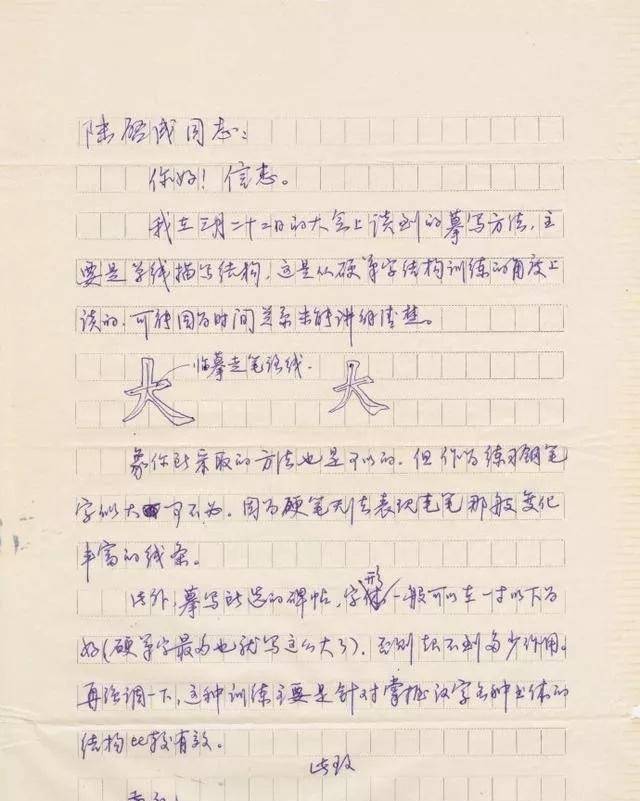 陆启成同志：
你好！信悉。
我在三月二十二日的大会上谈到的摹写方法，主
要是单线描写结构，这是从硬笔字结构训练的角度上
谈的，可能因为时间关系未能讲细清楚。
大 临摹走笔路线. 大
象你所采取的方法也是可以的，但作为练习钢笔
字似大可不必，因为硬笔无法表现毛笔那般变化
丰富的线条。
此外，摹写所选的碑帖，字形一般可以在一寸以下为
好（硬笔字最多也就写这么大了），否则起不到多少作用。
再强调一下，这种训练主要是针对掌握汉字各种书体的
结构比较有效。
此致